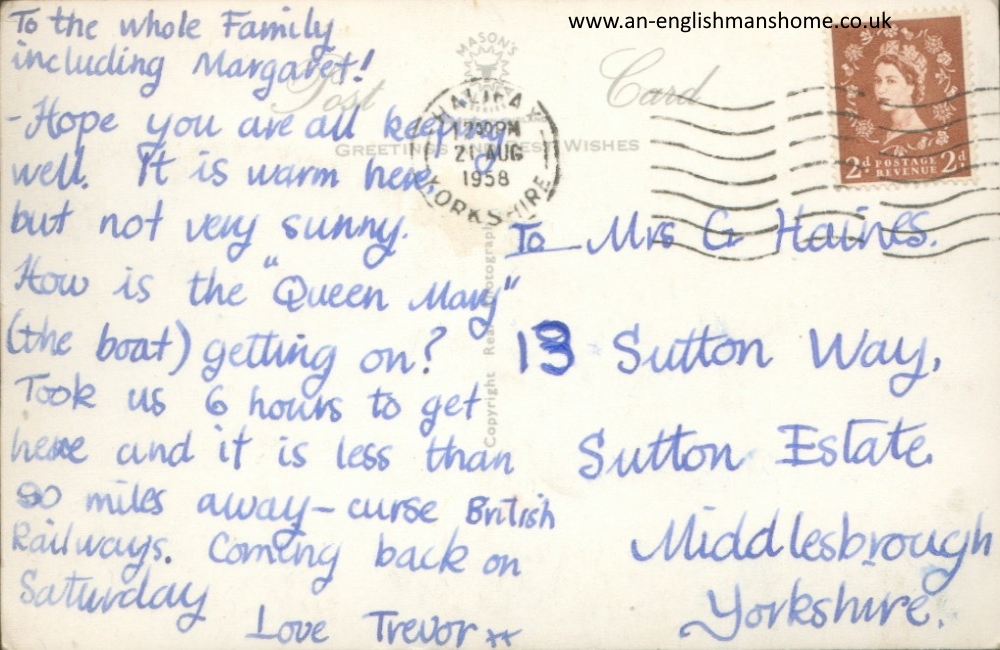 www.an-englishmanshome.co.uk
To the whole Family
including Margaret!
-Hope you are all keeping
well. It is warm here,
but not very sunny.
How is the "Queen Mary"
(the boat) getting on?
Took us 6 hours to get
here and it is less than
miles away - curse British
Railways. Coming back on
Saturday
Love Trevor xx
MASON'S
Post Card
GREETINGS AND BEST WISHES
Copyright Real Photograph
HALIFAX
12:00PM
21 AUG
1958
YORKSHIRE
2d POSTAGE REVENUE 2d
To Mrs G Haines.
13 Sutton Way,
Sutton Estate.
Middlesbrough
Yorkshire.